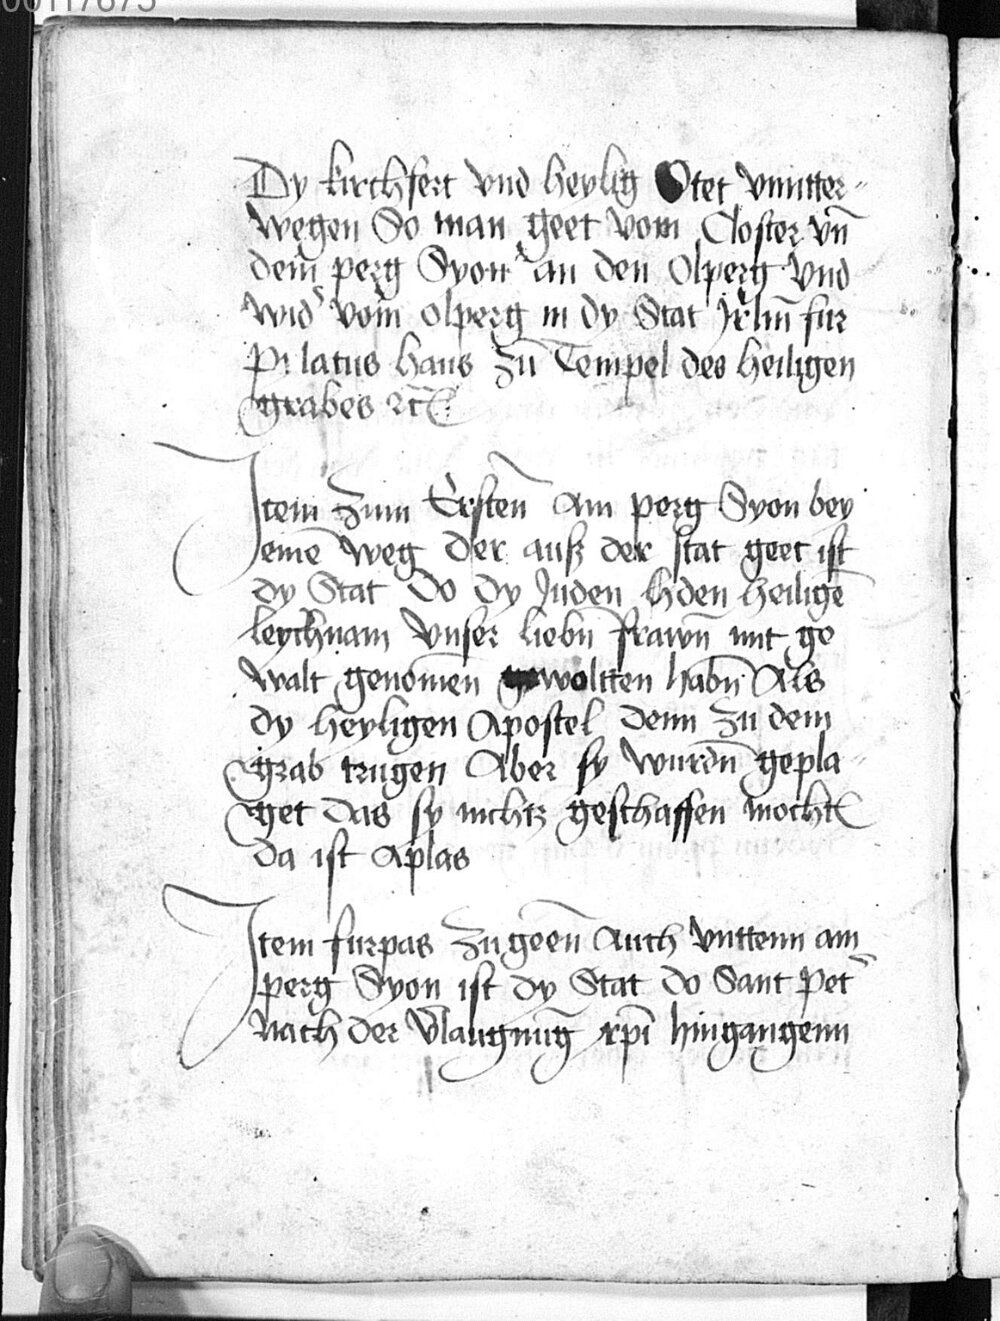 Dy kirchfert vnd heylig Stet vnntter=
wegen So man geet vom Closter vn̄
dem̄ perg Syon an den Olperg vnd
wid' vom̄ olperg in dy Stat Jrl̄m fur
Pilatus haus zu Tempel des heiligen
grabes ⁊c̄
Item Zum Ersten̄ Am perg Syon bey
einē weg der auß der stat geet ist
dy Stat Do Dy Juden h̶den heiligē
leychnam vnser liebn̄ frawn̄ mit ge
walt genōmen wolltten habn̄ Als
dy heyligen Apostel denn zu dem
grab trugen Aber sy wurdn̄ gepla=
get das sy nichtz geschaffen mocht̄
da ist Aplas
Item furpas zu geen̄ Auch vnttenn am
perg Syon ist dy Stat do Sant Pet'
Nach der v̄laugnūg xp̄i hingangenn